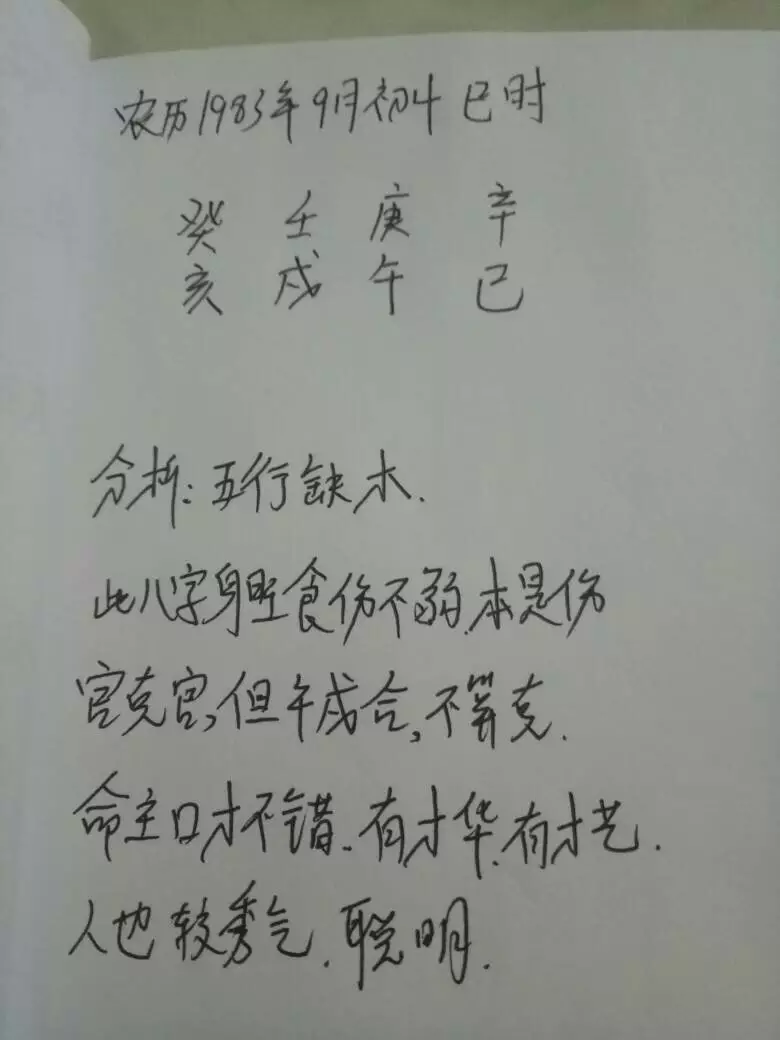 农历1983年9月初4 巳时
癸 壬 庚 辛
亥 戌 午 巳
分析:五行缺木.
此八字身旺食伤不弱.本是伤
官克官,但午戌合,不算克.
命主口才不错.有才华.有才艺.
人也较秀气.聪明.